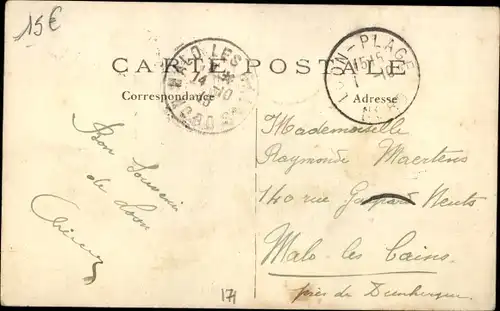 15€
CARTE POSTALE
Correspondance
Adresse
LOON-PLAGE
MALO LES
Bon Souvenir
de Loon
Mademoiselle
Raymonde Maertens
140 rue Gaspard Neuts
Malo les Bains
près de Dunkerque
174